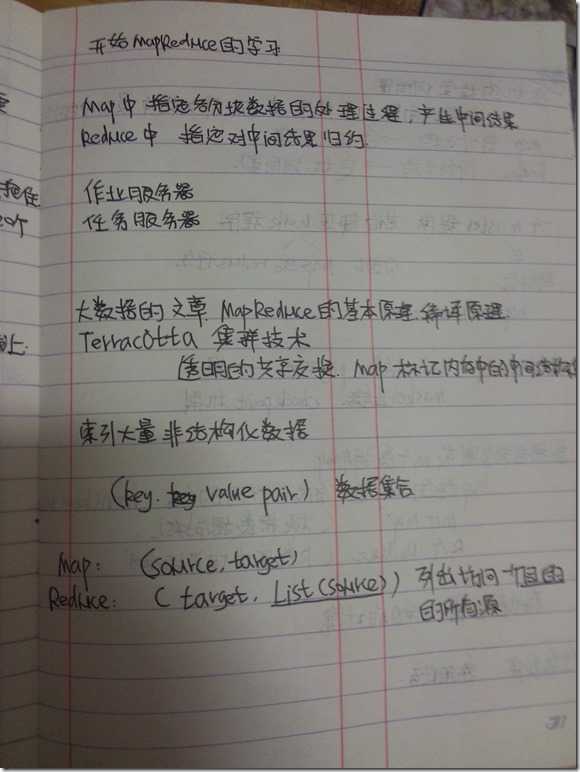 开始 MapReduce 的学习
Map 中 指定每块数据的处理过程,产生中间结果
Reduce 中 指定对中间结果归约.
作业服务器
任务服务器
大数据的文章 MapReduce的基本原理.编译原理
Terracotta 集群技术
透明的共享交换. Map 标记内存中的中间结
索引大量非结构化数据
(key. value pair) 数据集合
Map: (source, target)
Reduce: (target, List(source)) 列出访问一个目的
的所有源